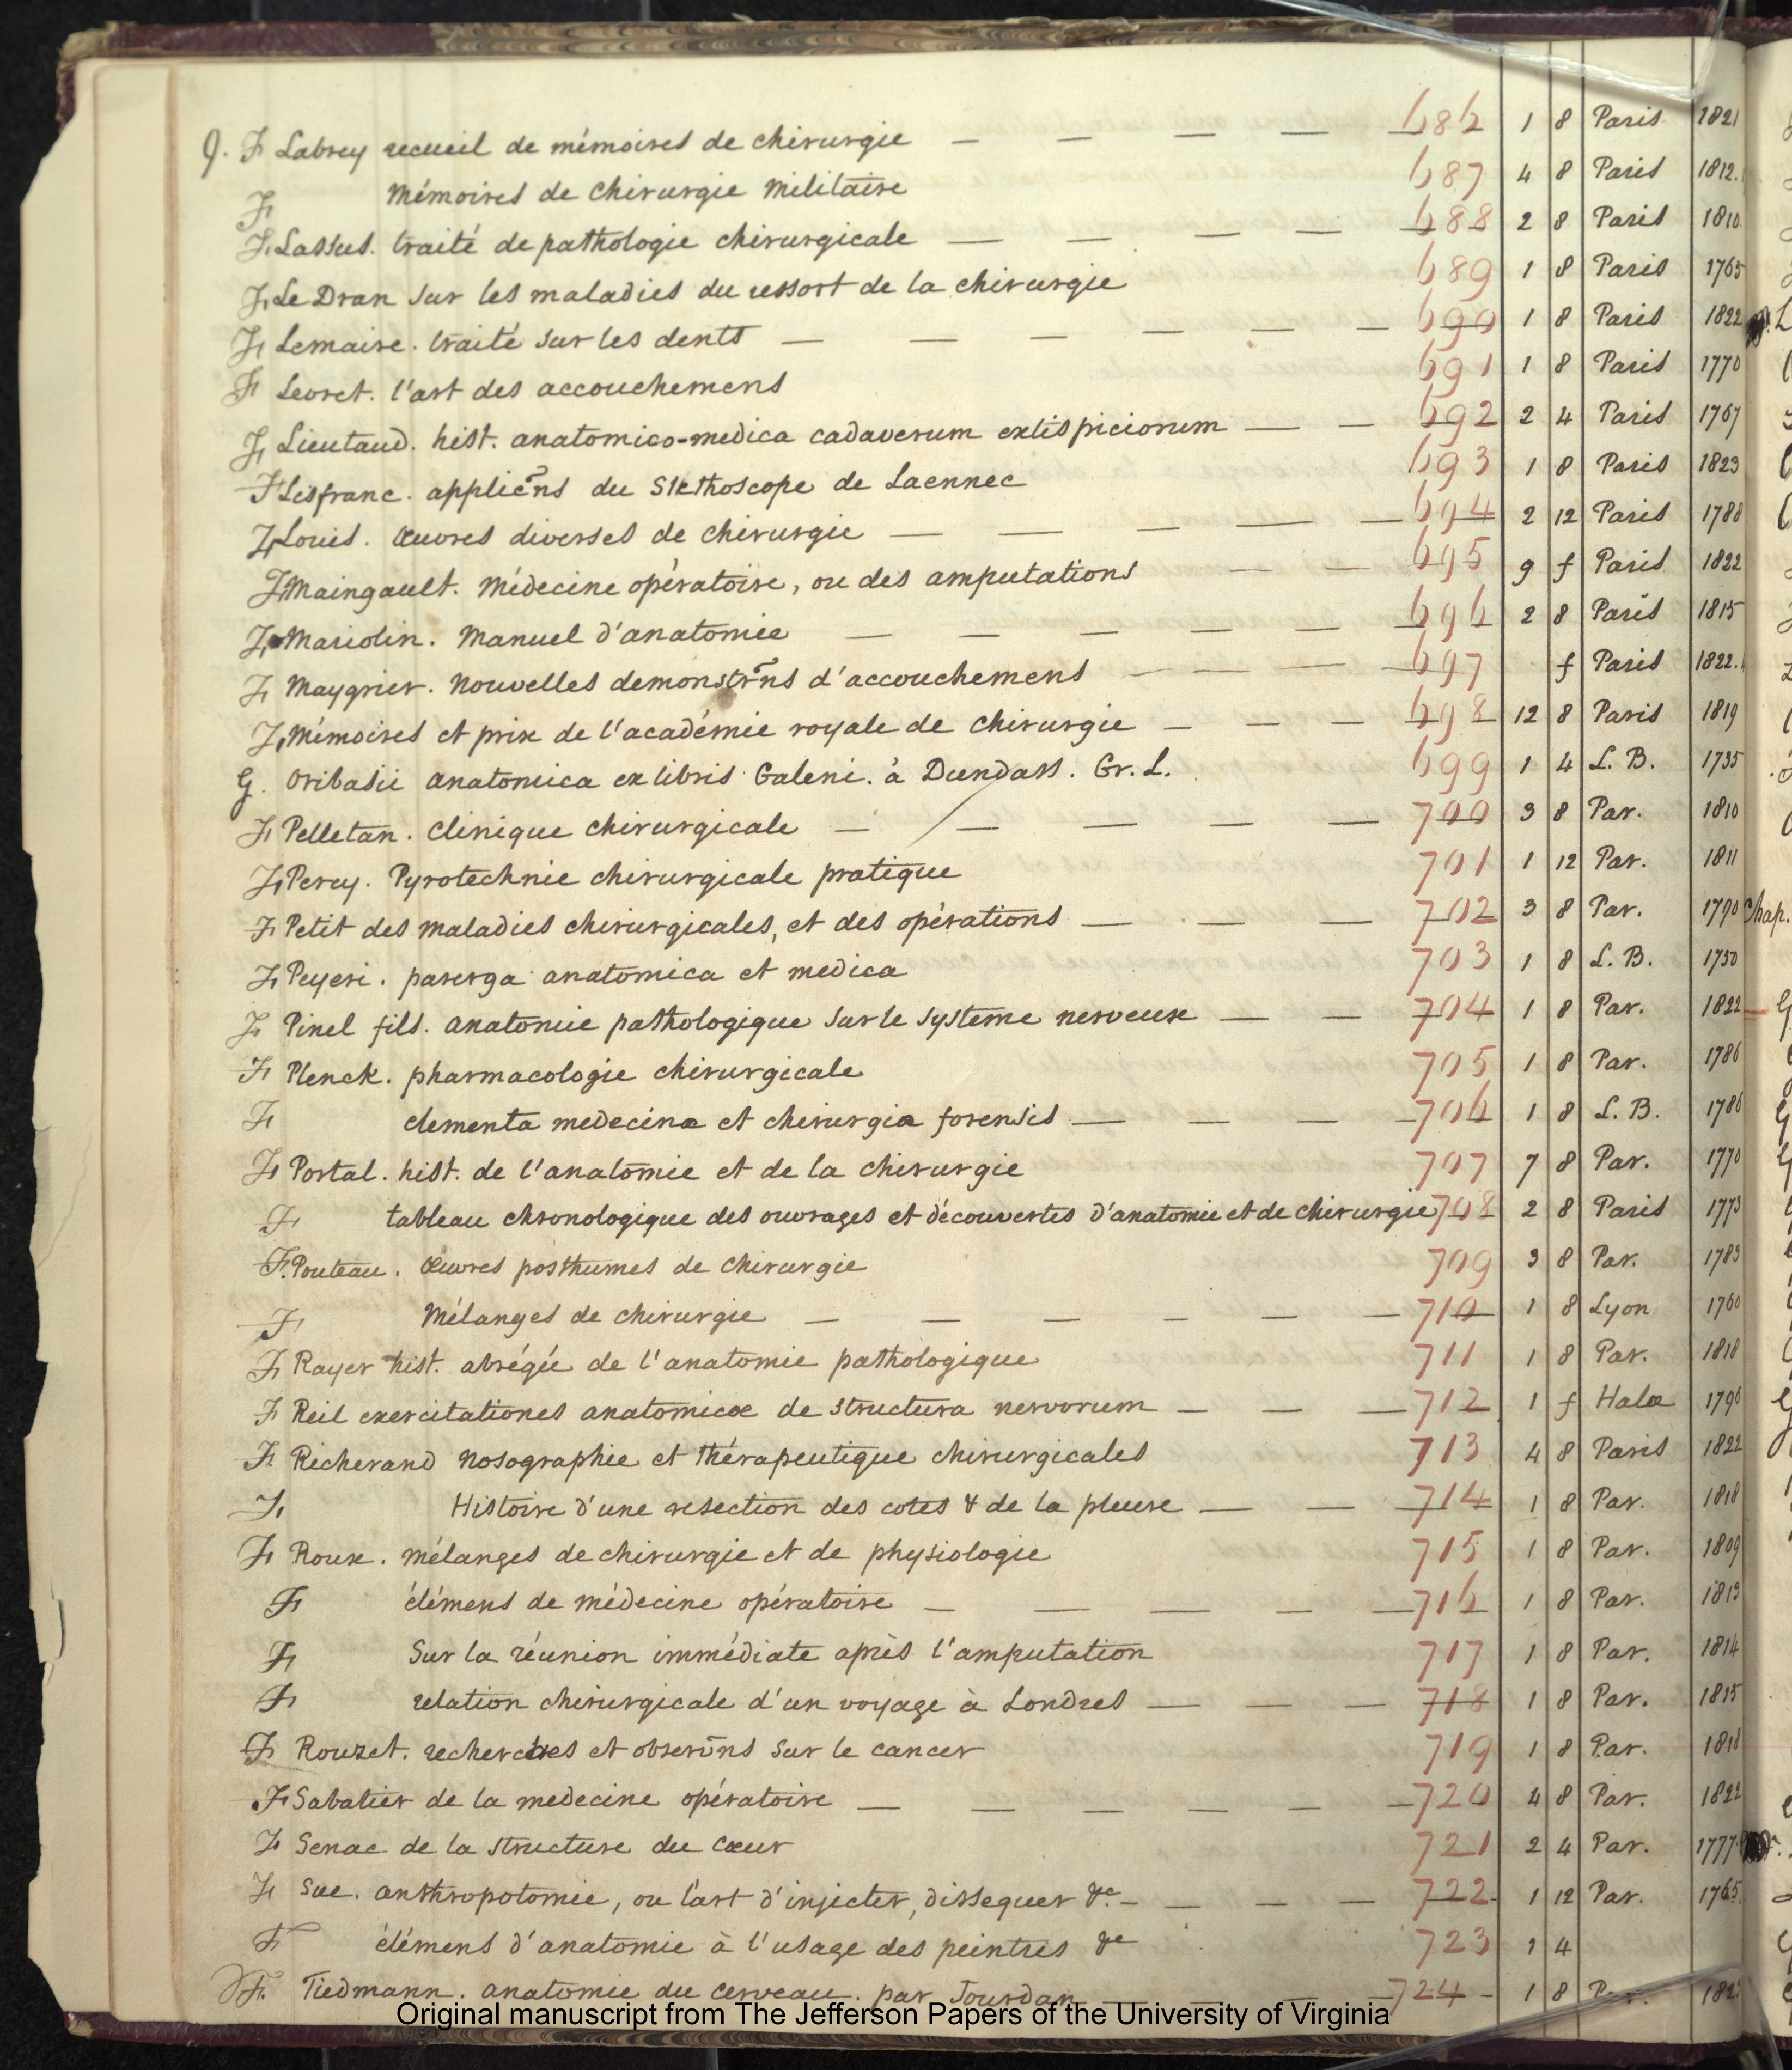 9. F Labrey recueil de mémoires de chirurgie — — — — — 686 1 8 Paris 1821
F Mémoires de chirurgie militaire 687 4 8 Paris 1812.
F Lassus. traité de pathologie chirurgicale — — — — 688 2 8 Paris 1810
F Le Dran sur les maladies du ressort de la chirurgie 689 1 8 Paris 1765
F Lemaire. traité sur les dents — — — — — — 690 1 8 Paris 1822
F Levret. l'art des accouchemens 691 1 8 Paris 1770
F Lieutaud. hist. anatomico-medica cadaverum extispiciorum — — 692 2 4 Paris 1767
F Lisfranc. applicñs du Stethoscope de Laennec 693 1 8 Paris 1823
F Louis. Œuvres diverses de chirurgie — — — — — 694 2 12 Paris 1788
F Maingault. Médecine opératoire, ou des amputations — — 695 9 f Paris 1822
F Mariolin. Manuel d'anatomie — — — — — — 696 2 8 Paris 1815
F Maygrier. Nouvelles demonstrñs d'accouchemens — — — — 697 f Paris 1822.
F Mémoires et prix de l'académie royale de chirurgie — — — — 698 12 8 Paris 1819
G. Oribasii anatomica ex libris Galeni. à Dundass. Gr. L. 699 1 4 L. B. 1735
F Pelletan. Clinique chirurgicale — — — — — 700 3 8 Par. 1810
F Percy. Pyrotechnie chirurgicale pratique 701 1 12 Par. 1811
F Petit des maladies chirurgicales, et des opérations — — — 702 3 8 Par. 1790
F Peyeri. parerga anatomica et medica 703 1 8 L. B. 1750
F Pinel fils. anatomie pathologique sur le systeme nerveux — — 704 1 8 Par. 1822
F Plenck. pharmacologie chirurgicale 705 1 8 Par. 1786
F elementa medecinæ et chirurgiæ forensis — — — — 706 1 8 L. B. 1786
F Portal. hist. de l'anatomie et de la chirurgie 707 7 8 Par. 1770
F tableau chronologique des ouvrages et découvertes d'anatomie et de chirurgie 708 2 8 Paris 1773
F. Pouteau. Œuvres posthumes de chirurgie 709 3 8 Par. 1783
F Mélanges de chirurgie — — — — — — 710 1 8 Lyon 1760
F Rayer hist. abrégée de l'anatomie pathologique 711 1 8 Par. 1818
F Reil exercitationes anatomicæ de structura nervorum — — — 712 1 f Halæ 1796
F. Richerand Nosographie et thérapeutique chirurgicales 713 4 8 Paris 1822
F Histoire d'une resection des cotes & de la pleure — — — 714 1 8 Par. 1818
F Roux. mélanges de chirurgie et de physiologie 715 1 8 Par. 1809
F élémens de médecine opératoire — — — — — 716 1 8 Par. 1813
F Sur la réunion immédiate après l'amputation 717 1 8 Par. 1814
F relation chirurgicale d'un voyage à Londres — — — 718 1 8 Par. 1815
F Rouzet. recherches et observñs sur le cancer 719 1 8 Par. 1818
F Sabatier de la medecine opératoire — — — — — — 720 4 8 Par. 1822
F Senac de la structure du Cœur 721 2 4 Par. 1777
F Sue. anthropotomie, ou l'art d'injecter, dissequer &c — — — — 722 1 12 Par. 1765.
F élémens d'anatomie à l'usage des peintres &c 723 1 4
F. Tiedmann. anatomie du cerveau. par Jourdan — 724 1 8
Chap.
Original manuscript from The Jefferson Papers of the University of Virginia